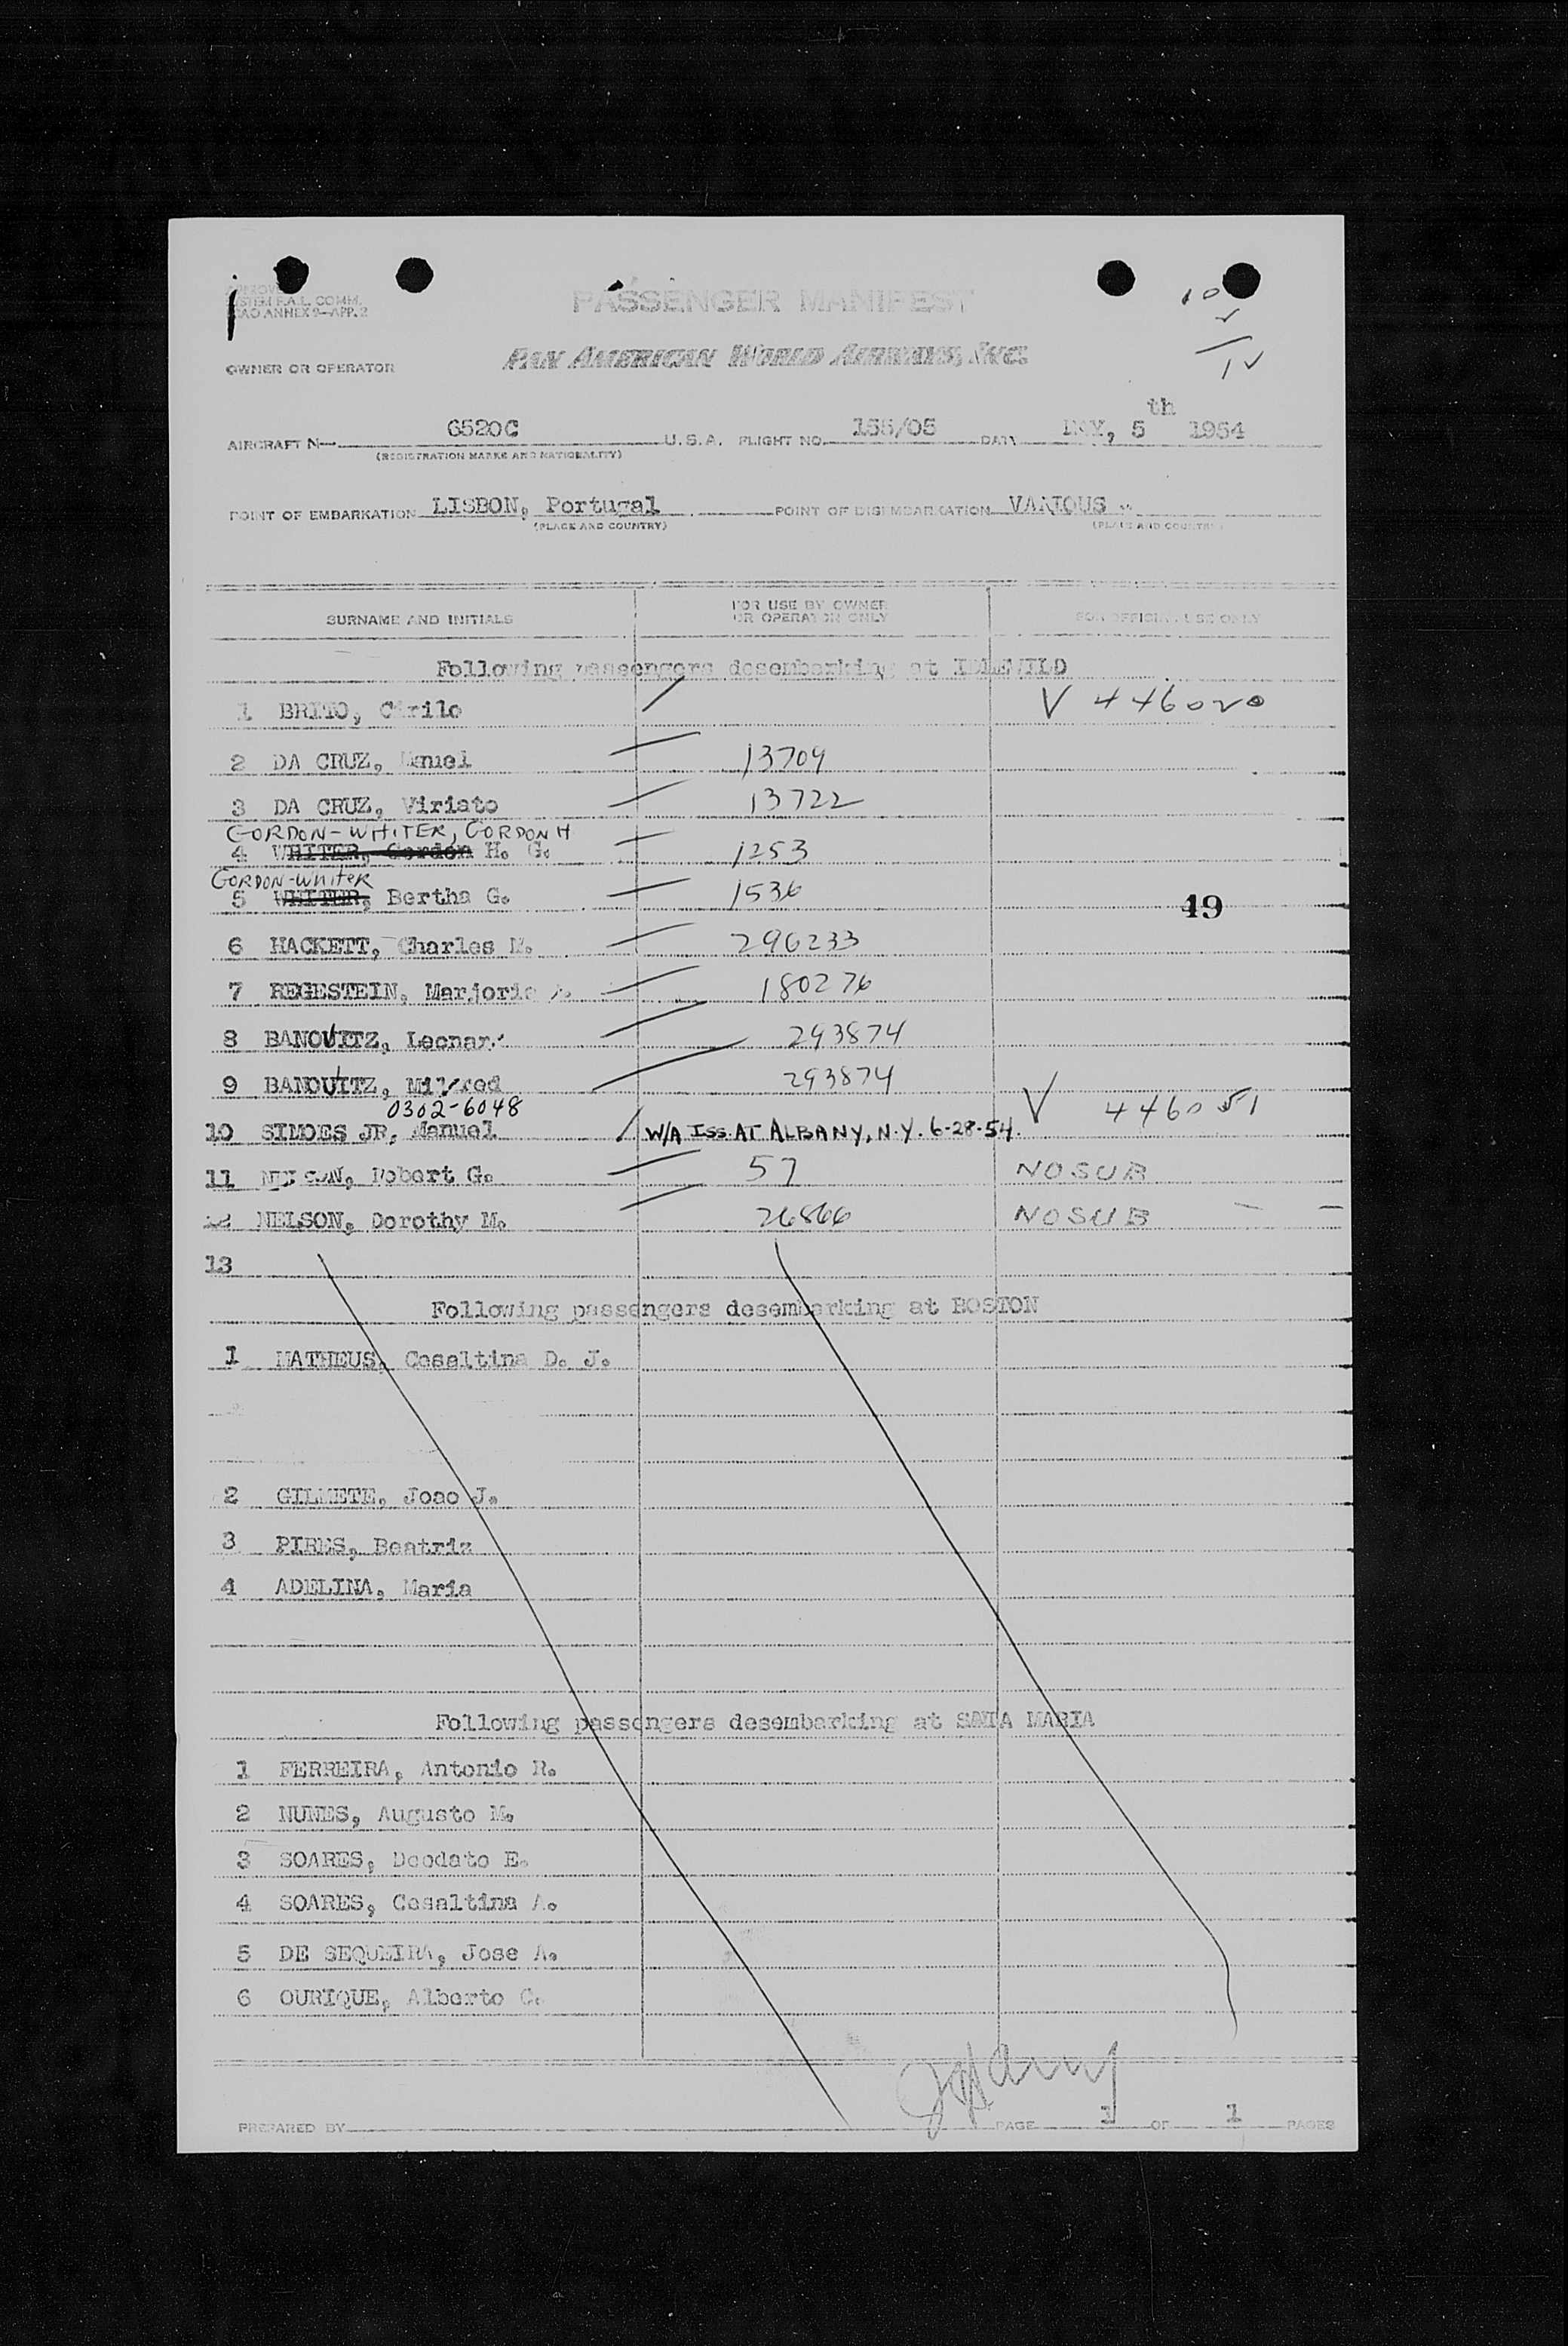 PASSENGER MANIFEST
SYSTEM F.A.L. COMM.
ICAO ANNEX 9—APP. 2
10
1
OWNER OR OPERATOR PAN AMERICAN WORLD AIRWAYS, INC.
AIRCRAFT N— 6520C U.S.A. FLIGHT NO. 155/05 DATE 5th 1954
(REGISTRATION MARKS AND NATIONALITY)
POINT OF EMBARKATION LISBON, Portugal POINT OF DISEMBARKATION VARIOUS
(PLACE AND COUNTRY) (PLACE AND COUNTRY)
SURNAME AND INITIALS FOR USE BY OWNER OR OPERATOR ONLY FOR OFFICIAL USE ONLY
Following passengers desembarking at IDLEWILD
1 BRITO, Cirilo V 446020
2 DA CRUZ, Manuel 13709
3 DA CRUZ, Viriato 13722
GORDON-WHITER, GORDON H
4 WHITER, Gordon H. G. 1253
GORDON-WHITER
5 WHITER, Bertha G. 1536
49
6 HACKETT, Charles M. 296233
7 REGESTEIN, Marjorie A. 180276
8 BANOVITZ, Leonard 293874
9 BANOVITZ, Mildred 293874
0302-6048 V 446051
10 SIMOES JR, Manuel W/A ISS. AT ALBANY, N.Y. 6-28-54.
11 Robert G. 57 NO SUB
12 NELSON, Dorothy M. 26866 NO SUB
13
Following passengers desembarking at BOSTON
1 MATHEUS, Cesaltina D. J.
2 GILMETE, Joao J.
3 PIRES, Beatriz
4 ADELINA, Maria
Following passengers desembarking at SANTA MARIA
1 FERREIRA, Antonio R.
2 NUNES, Augusto M.
3 SOARES, Deodato E.
4 SOARES, Cesaltina A.
5 DE SEQUEIRA, Jose A.
6 OURIQUE, Alberto C.
PREPARED BY PAGE 1 OF 1 PAGES